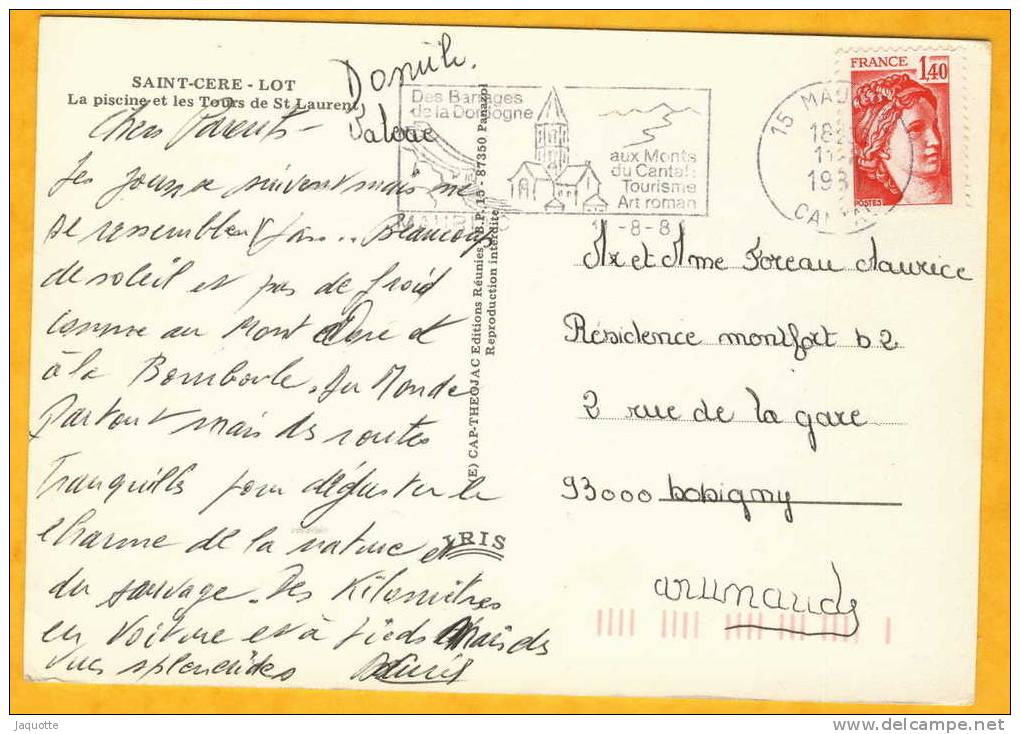 SAINT-CERE - LOT
La piscine et les Tours de St Laurent
Chers Parents -
Les jours se suivent mais ne
se ressemblent pas... Beaucoup
de soleil et pas de froid
comme au Mont Dore et
à la Bourboule. Du Monde
Partout mais des routes
Tranquilles pour déguster le
charme de la nature et
du sauvage. Des Kilomètres
en voiture et à pieds Mais des
vues splendides
(E) CAP-THEOJAC Editions Réunies - B.P. 15 - 87350 Panazol
Reproduction interdite
IRIS
Des Barrages
de la Dordogne
aux Monts
du Cantal:
Tourisme
Art roman
-8-8
15 MAU
CANTAL
FRANCE
1,40
POSTES
Mr et Mme Foreau Maurice
Résidence montfort b2
2 rue de la gare
93000 bobigny
Jaquotte
www.delcampe.net